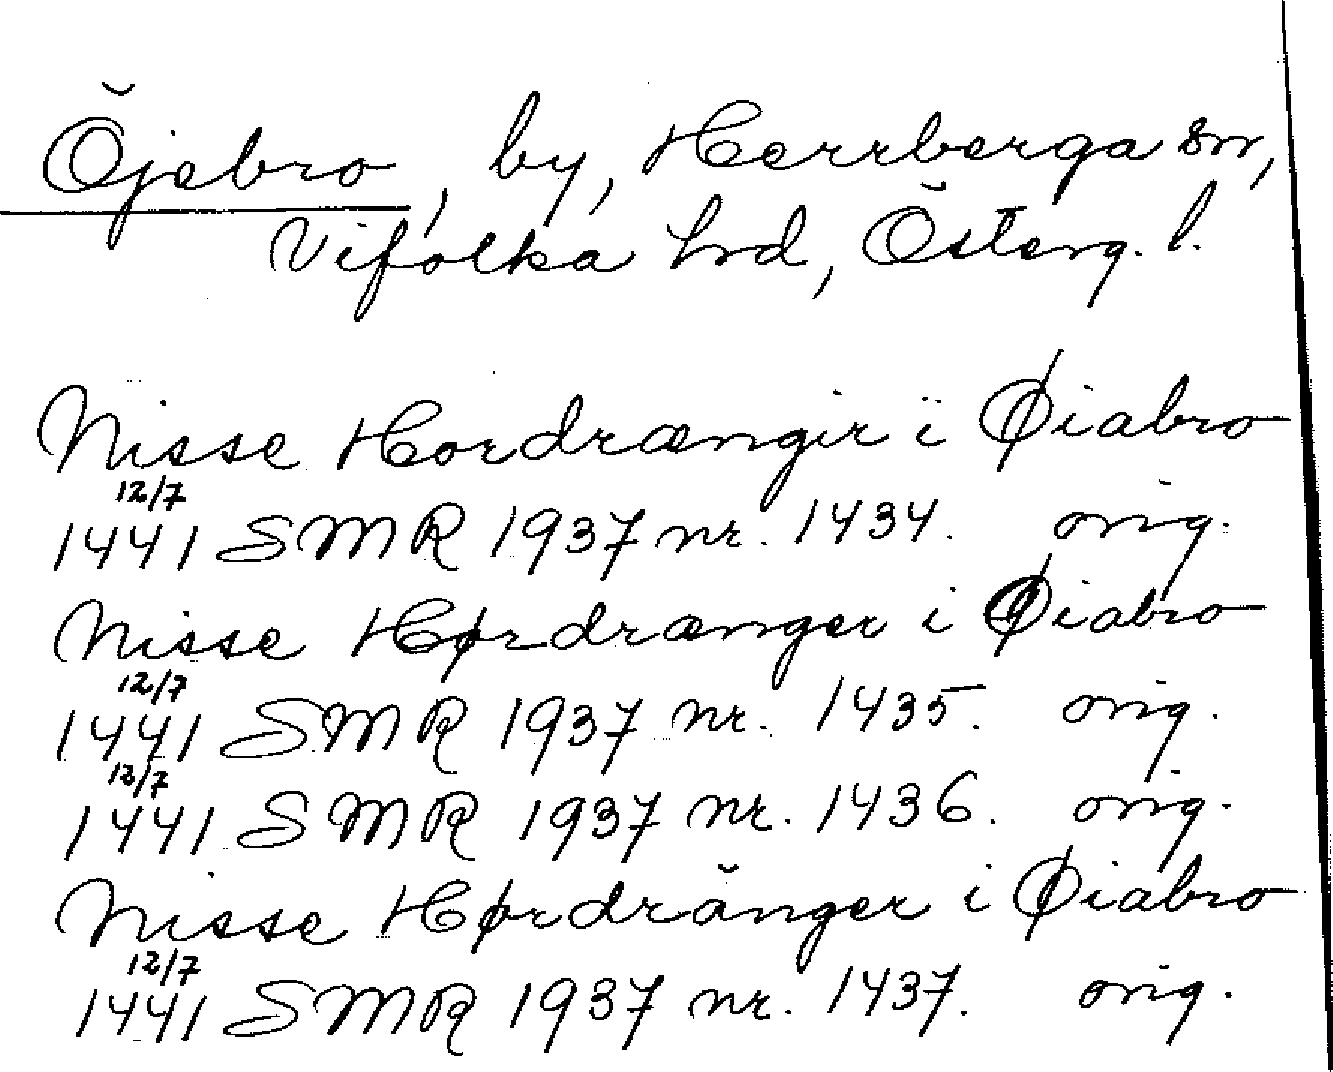 Öjebro, by, Herrberga sn,
Vifolka hd, Österg. l.
Nisse Hordrængir i Øiabro
12/7
1441 SMR 1937 nr. 1434. orig.
Nisse Hørdrænger i Øiabro
12/7
1441 SMR 1937 nr. 1435. orig.
12/7
1441 SMR 1937 nr. 1436. orig.
Nisse Hørdränger i Øiabro
12/7
1441 SMR 1937 nr. 1437. orig.